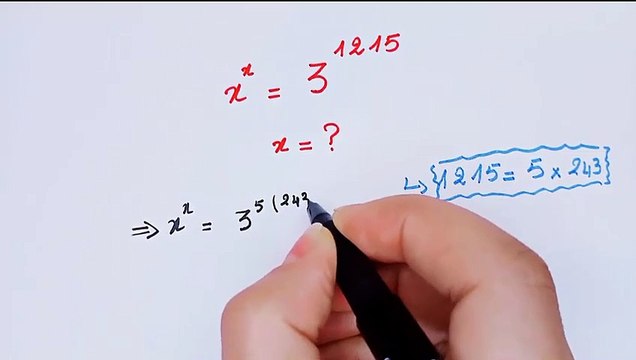 x^x = 3^1215
x = ?
↳ {1215 = 5 × 243}
⇒ x^x = 3^5(243